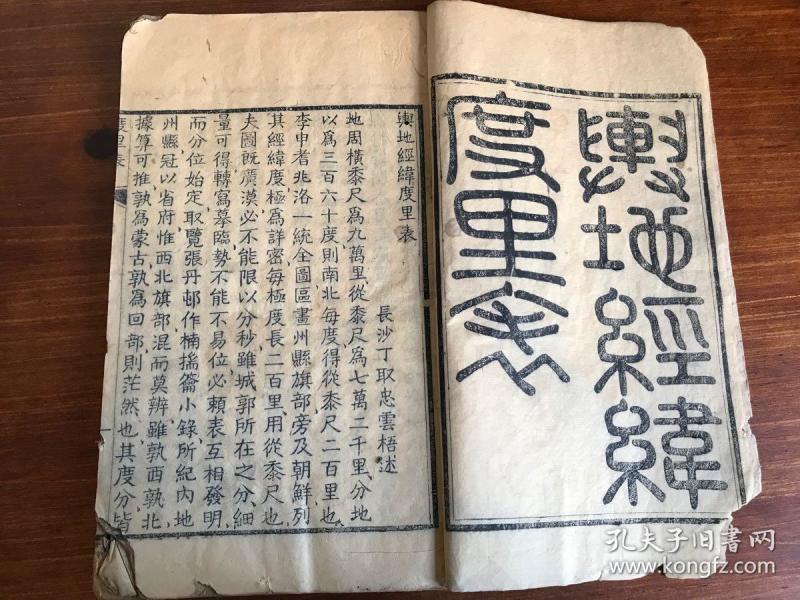 輿地經緯
度里表
輿地經緯度里表
長沙丁取忠雲梧述
地周橫黍尺為九萬里從黍尺為七萬二千里分地
以為三百六十度則南北每度得從黍尺二百里也
李申耆兆洛一統全圖區畫州縣旗部旁及朝鮮列
其經緯度極為詳密每極度長二百里用從黍尺也
夫圖既廣漠必不能限以分秒雖城郭所在之分細
量可得轉寫摹臨勢不能不易位必賴表互相發明
而分位始定取覽張丹邨作楠揣籥小錄所紀內地
州縣冠以省府惟西北旗部混而莫辨雖孰西孰北
據算可推孰為蒙古孰為回部則茫然也其度分皆
度里表
一
孔夫子旧书网
www.kongfz.com